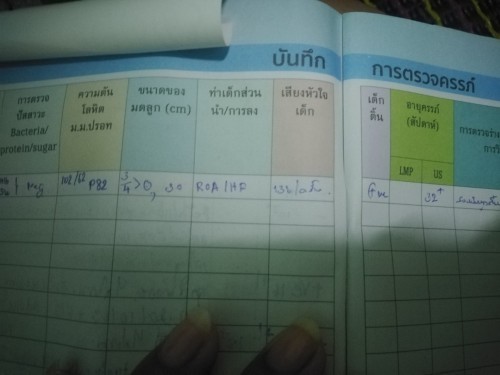 บันทึก
การตรวจครรภ์
การตรวจ
ปัสสาวะ
Bacteria/
protein/sugar
ความดัน
โลหิต
ม.ม.ปรอท
ขนาดของ
มดลูก (cm)
ท่าเด็กส่วน
นำ/การลง
เสียงหัวใจ
เด็ก
เด็ก
ดิ้น
อายุครรภ์
(สัปดาห์)
LMP
US
P82
3/4 > 0, 30
ROA / HF
32⁺